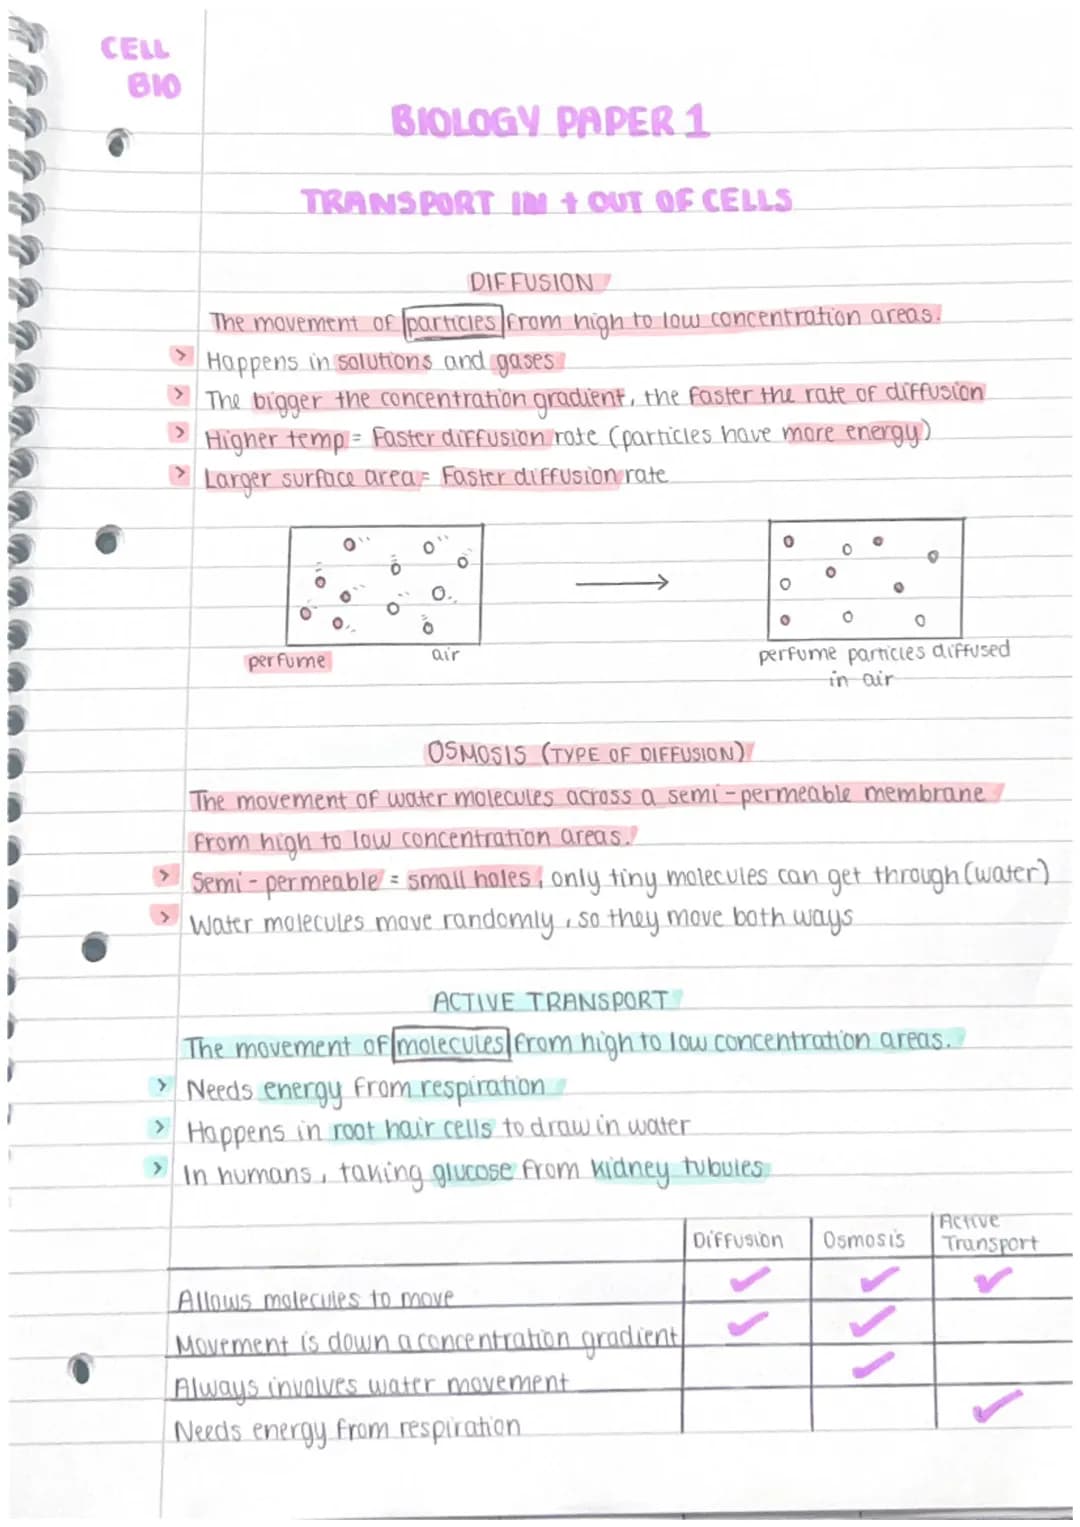 CELL
BIO
BIOLOGY PAPER 1
TRANSPORT IN + OUT OF CELLS
DIFFUSION
The movement of particles from high to low concentration areas.
> Happens in solutions and gases
> The bigger the concentration gradient, the faster the rate of diffusion
> Higher temp = Faster diffusion rate (particles have more energy)
> Larger surface area = Faster diffusion rate
perfume
air
perfume particles diffused
in air
OSMOSIS (TYPE OF DIFFUSION)
The movement of water molecules across a semi-permeable membrane
from high to low concentration areas.
> Semi-permeable = small holes, only tiny molecules can get through (water)
> Water molecules move randomly, so they move both ways
ACTIVE TRANSPORT
The movement of molecules from high to low concentration areas.
> Needs energy from respiration
> Happens in root hair cells to draw in water
> In humans, taking glucose from kidney tubules
Diffusion Osmosis Active
Transport
Allows molecules to move ✓ ✓ ✓
Movement is down a concentration gradient ✓ ✓
Always involves water movement ✓
Needs energy from respiration ✓